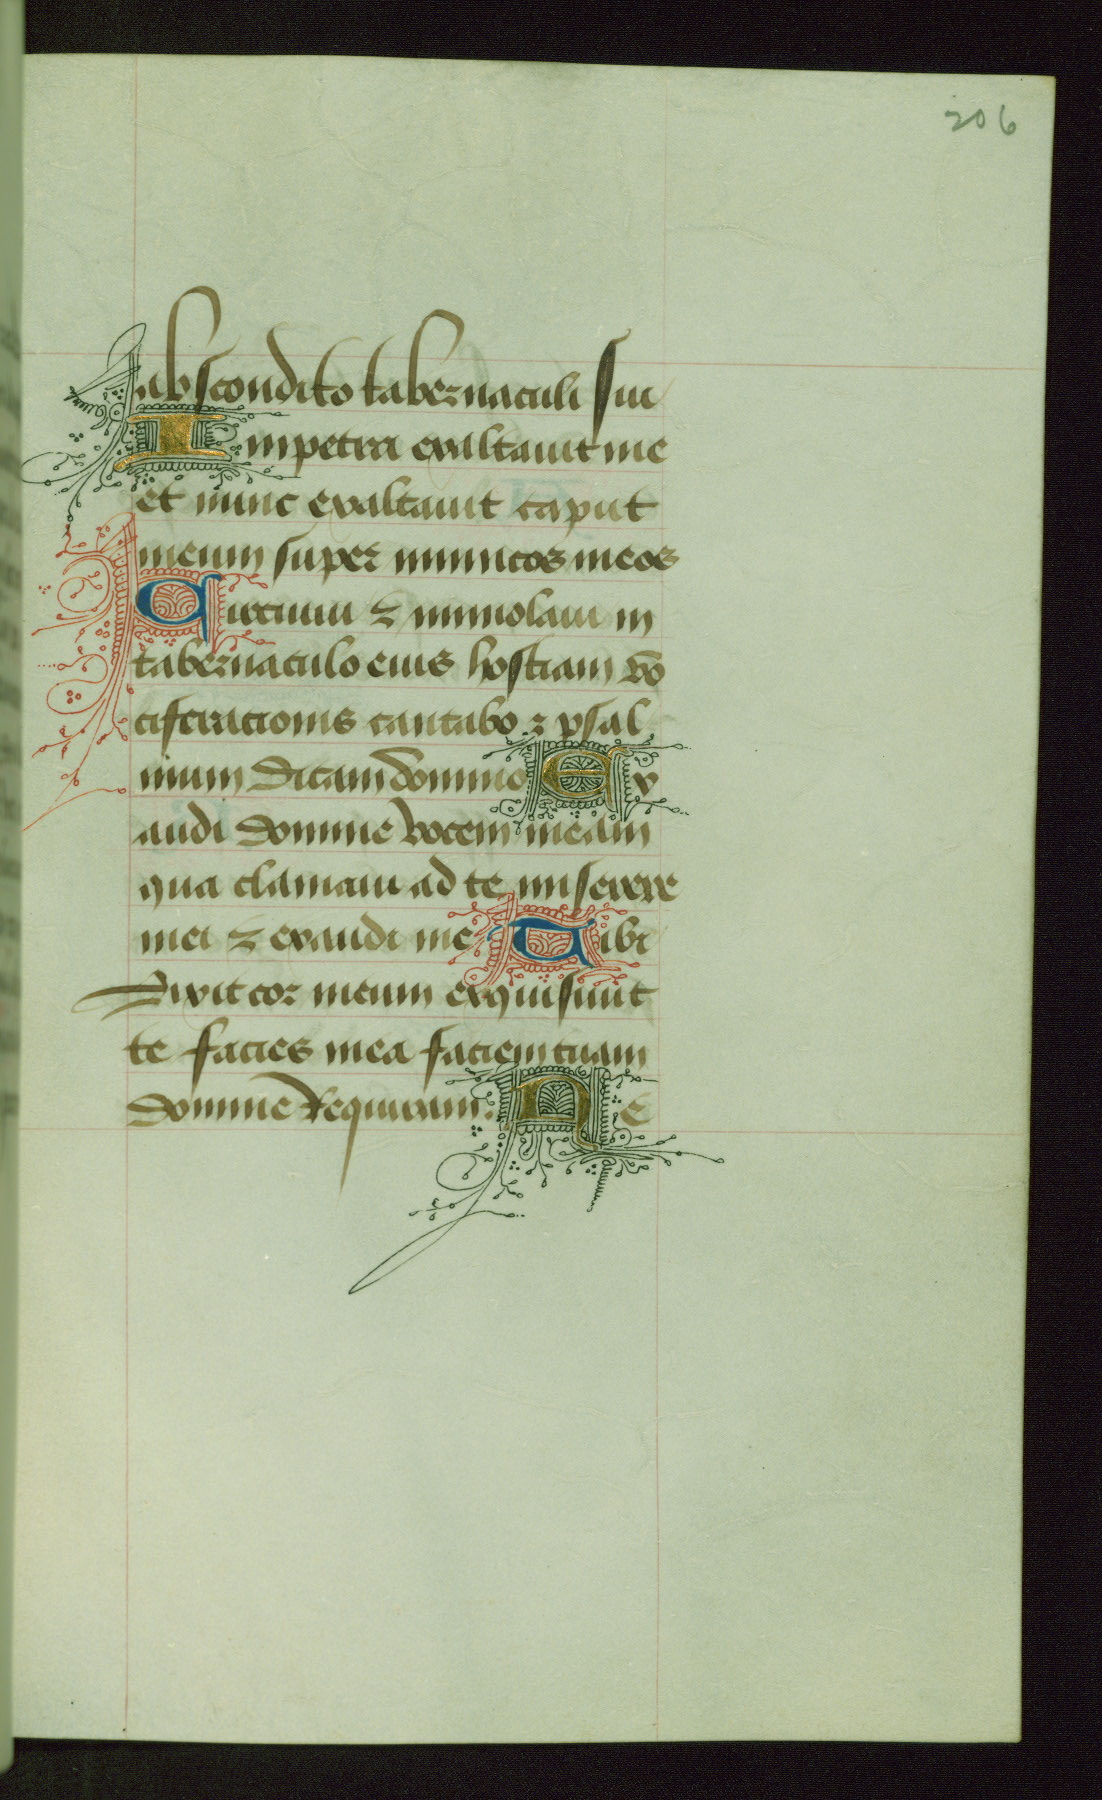 206
abscondito tabernaculi sui
In petra exaltauit me
et nunc exaltauit caput
meum super inimicos meos
Circuiui ⁊ immolaui in
tabernaculo eius hostiam vo
ciferacionis cantabo ⁊ psal
mum dicam domino Ex
audi domine vocem meam
qua clamaui ad te miserere
mei ⁊ exaudi me Tibi
dixit cor meum exquisiuit
te facies mea faciem tuam
domine requiram. Ne